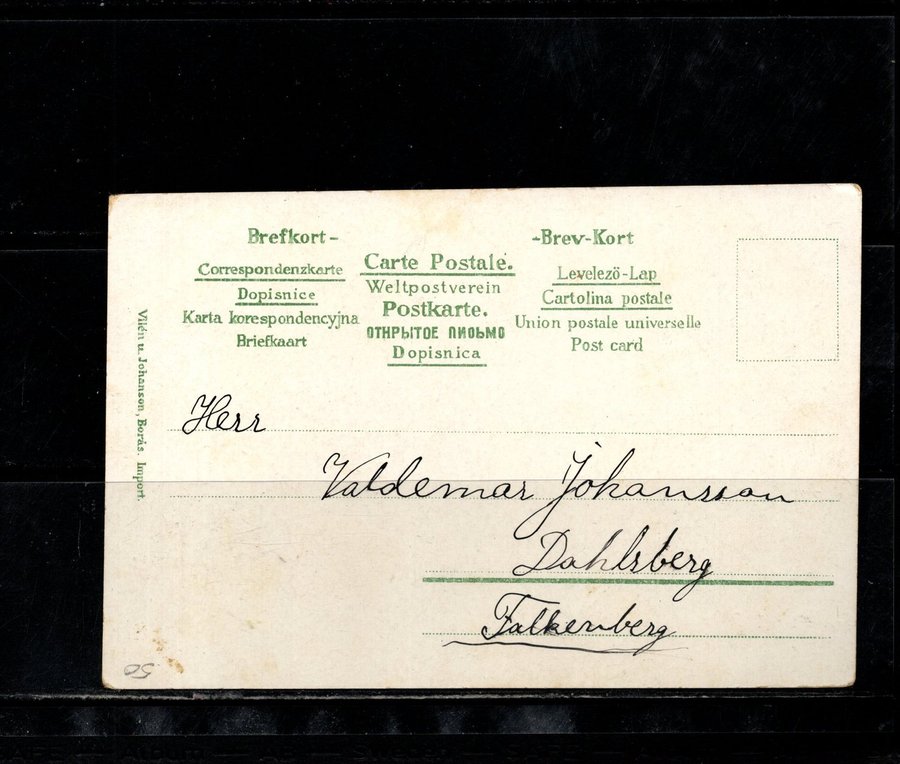 Brefkort-
Correspondenzkarte
Dopisnice
Karta korespondencyjna
Briefkaart
Carte Postale.
Weltpostverein
Postkarte.
ОТКРЫТОЕ ПИСЬМО
Dopisnica
-Brev-Kort
Levelező-Lap
Cartolina postale
Union postale universelle
Post card
Vilén u. Johanson, Borås. Import.
Herr
Valdemar Johansson
Dahlsberg
Falkenberg
50